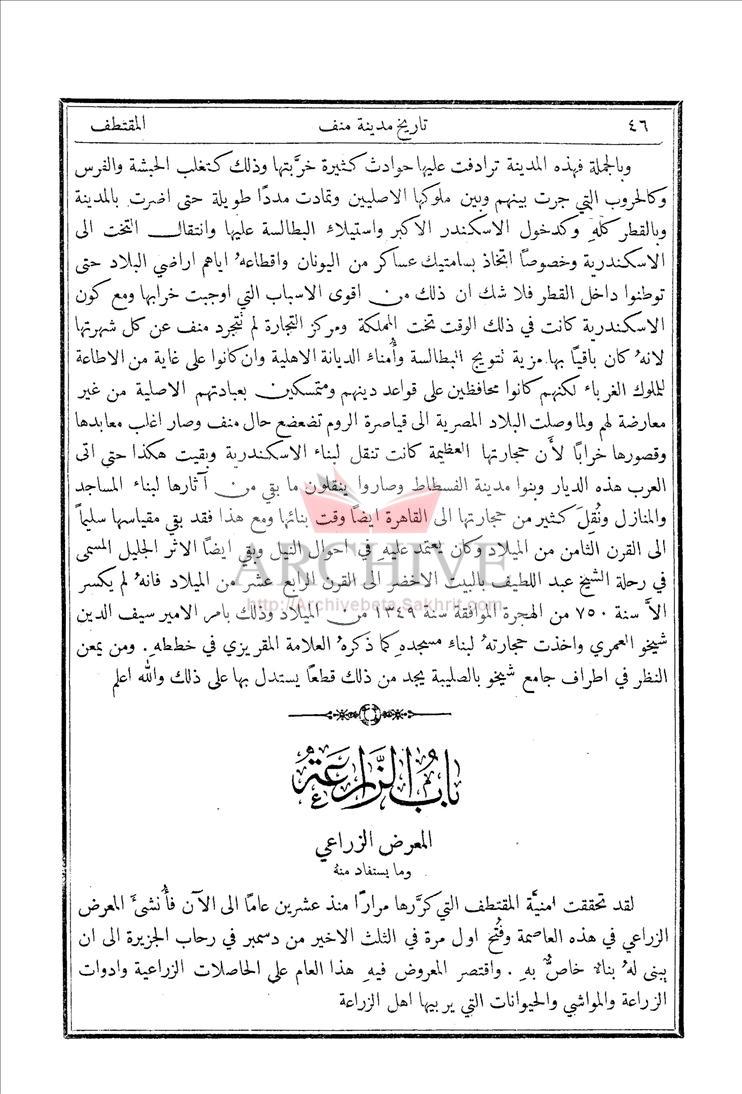 ٤٦ تاريخ مدينة منف المقتطف
وبالجملة فهذه المدينة ترادفت عليها حوادث كثيرة خرَّبتها وذلك كتغلب الحبشة والفرس
وكالحروب التي جرت بينهم وبين ملوكها الاصليين وتمادت مددًا طويلة حتى اضرت بالمدينة
وبالقطر كلهِ وكدخول الاسكندر الاكبر واستيلاء البطالسة عليها وانتقال التخت الى
الاسكندرية وخصوصًا اتخاذ بسامتيك عساكر من اليونان واقطاعهُ اياهم اراضي البلاد حتى
توطنوا داخل القطر فلا شك ان ذلك من اقوى الاسباب التي اوجبت خرابها ومع كون
الاسكندرية كانت في ذلك الوقت تخت المملكة ومركز التجارة لم تتجرد منف عن كل شهرتها
لانهُ كان باقيًا بها مزية تتويج البطالسة وأُمناء الديانة الاهلية وان كانوا على غاية من الاطاعة
للملوك الغرباء لكنهم كانوا محافظين على قواعد دينهم ومتمسكين بعبادتهم الاصلية من غير
معارضة لهم ولما وصلت البلاد المصرية الى قياصرة الروم تضعضع حال منف وصار اغلب معابدها
وقصورها خرابًا لأَن حجارتها العظيمة كانت تنقل لبناء الاسكندرية وبقيت هكذا حتى اتى
العرب هذه الديار وبنوا مدينة الفسطاط وصاروا ينقلون ما بقي من آثارها لبناء المساجد
والمنازل ونُقِلَ كثير من حجارتها الى القاهرة ايضًا وقت بنائها ومع هذا فقد بقي مقياسها سليماً
الى القرن الثامن من الميلاد وكان يعتمد عليهِ في احوال النيل وبقي ايضًا الاثر الجليل المسمى
في رحلة الشيخ عبد اللطيف بالبيت الاخضر الى القرن الرابع عشر من الميلاد فانهُ لم يكسر
الاَّ سنة ٧٥٠ من الهجرة الموافقة سنة ١٣٤٩ من الميلاد وذلك بامر الامير سيف الدين
شيخو العمري واخذت حجارتهُ لبناء مسجدهِ كما ذكرهُ العلامة المقريزي في خططهِ . ومن يمعن
النظر في اطراف جامع شيخو بالصليبة يجد من ذلك قطعًا يستدل بها على ذلك والله اعلم
ARCHIVE
http://Archivebeta.Sakhrit.com
باب الزراعة
المعرض الزراعي
وما يستفاد منه
لقد تحققت امنيَّة المقتطف التي كرَّرها مرارًا منذ عشرين عامًا الى الآن فأُنشئَ المعرض
الزراعي في هذه العاصمة وفُتح اول مرة في الثلث الاخير من دسمبر في رحاب الجزيرة الى ان
يبنى لهُ بناءٌ خاصٌّ بهِ . واقتصر المعروض فيهِ هذا العام على الحاصلات الزراعية وادوات
الزراعة والمواشي والحيوانات التي يربيها اهل الزراعة